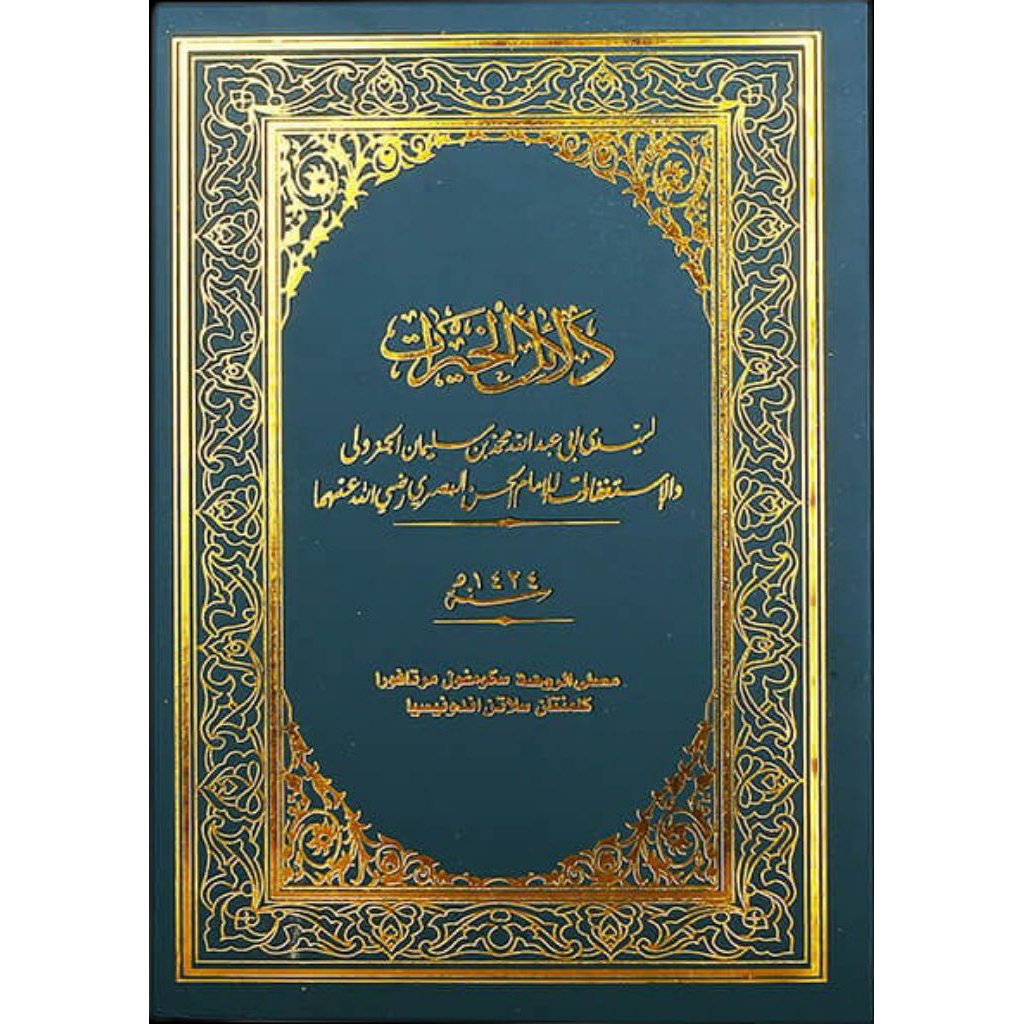 دلائل الخيرات
لسيدى ابى عبد الله محمد بن سليمان الجزولى
والإستغفارات للامام الحسن البصري رضي الله عنهما
سنة ١٤٢٤ه
مصلى الروضة سكومفول مرتافورا
كلمنتان سلاتن اندونيسيا